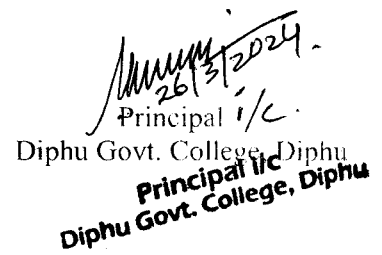 26/3/2024.
Principal i/c.
Diphu Govt. College, Diphu
Principal i/c
Diphu Govt. College, Diphu